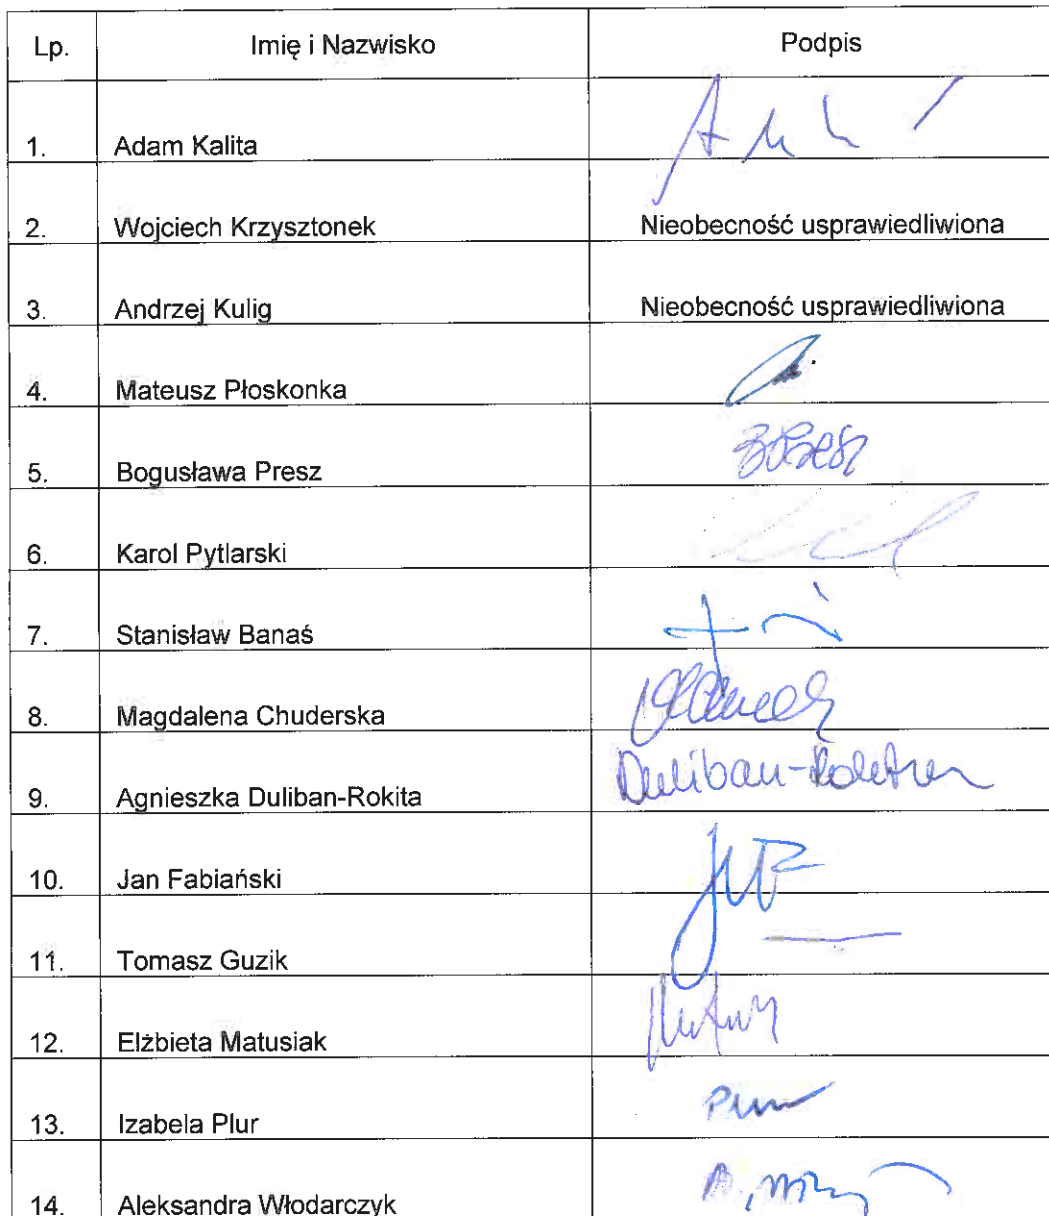 Lp. Imię i Nazwisko Podpis
1. Adam Kalita
2. Wojciech Krzysztonek Nieobecność usprawiedliwiona
3. Andrzej Kulig Nieobecność usprawiedliwiona
4. Mateusz Płoskonka
5. Bogusława Presz
6. Karol Pytlarski
7. Stanisław Banaś
8. Magdalena Chuderska
9. Agnieszka Duliban-Rokita Duliban-Rokita
10. Jan Fabiański
11. Tomasz Guzik
12. Elżbieta Matusiak
13. Izabela Plur
14. Aleksandra Włodarczyk